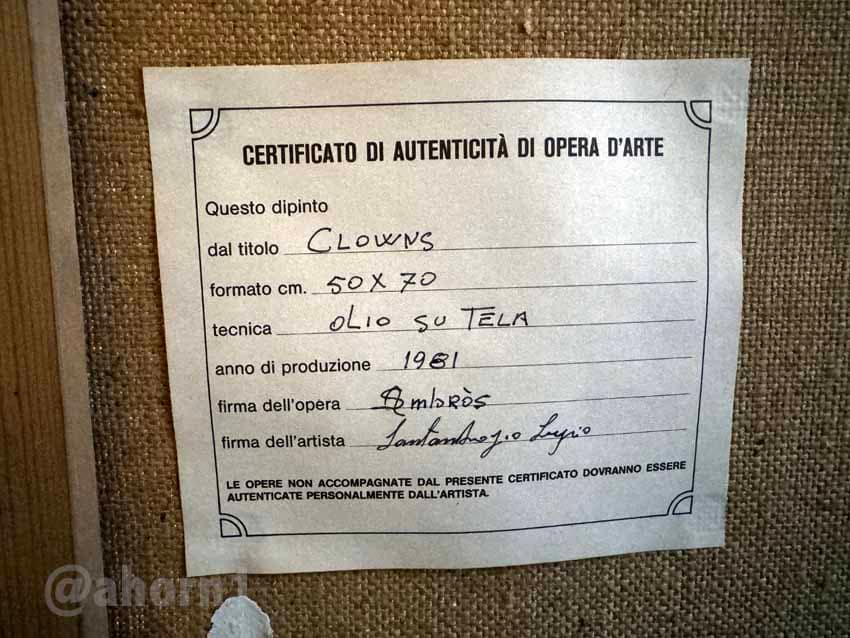 CERTIFICATO DI AUTENTICITÀ DI OPERA D'ARTE
Questo dipinto
dal titolo CLOWNS
formato cm. 50 X 70
tecnica OLIO SU TELA
anno di produzione 1981
firma dell'opera Ambròs
firma dell'artista
LE OPERE NON ACCOMPAGNATE DAL PRESENTE CERTIFICATO DOVRANNO ESSERE
AUTENTICATE PERSONALMENTE DALL'ARTISTA.
@ahorn1